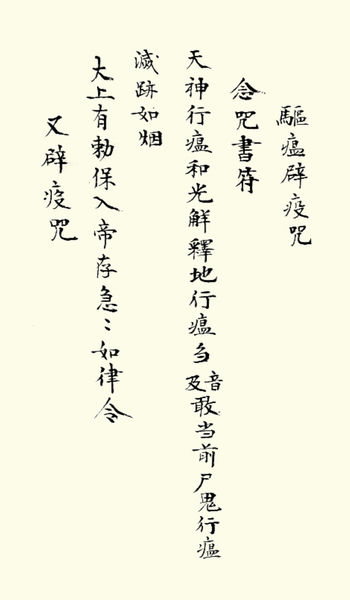 驅瘟辟疫咒
念咒書符
天神行瘟和光解釋地行瘟刍及音敢当前尸鬼行瘟
滅跡如烟
大上有勅保入帝存急〻如律令
又辟疫咒